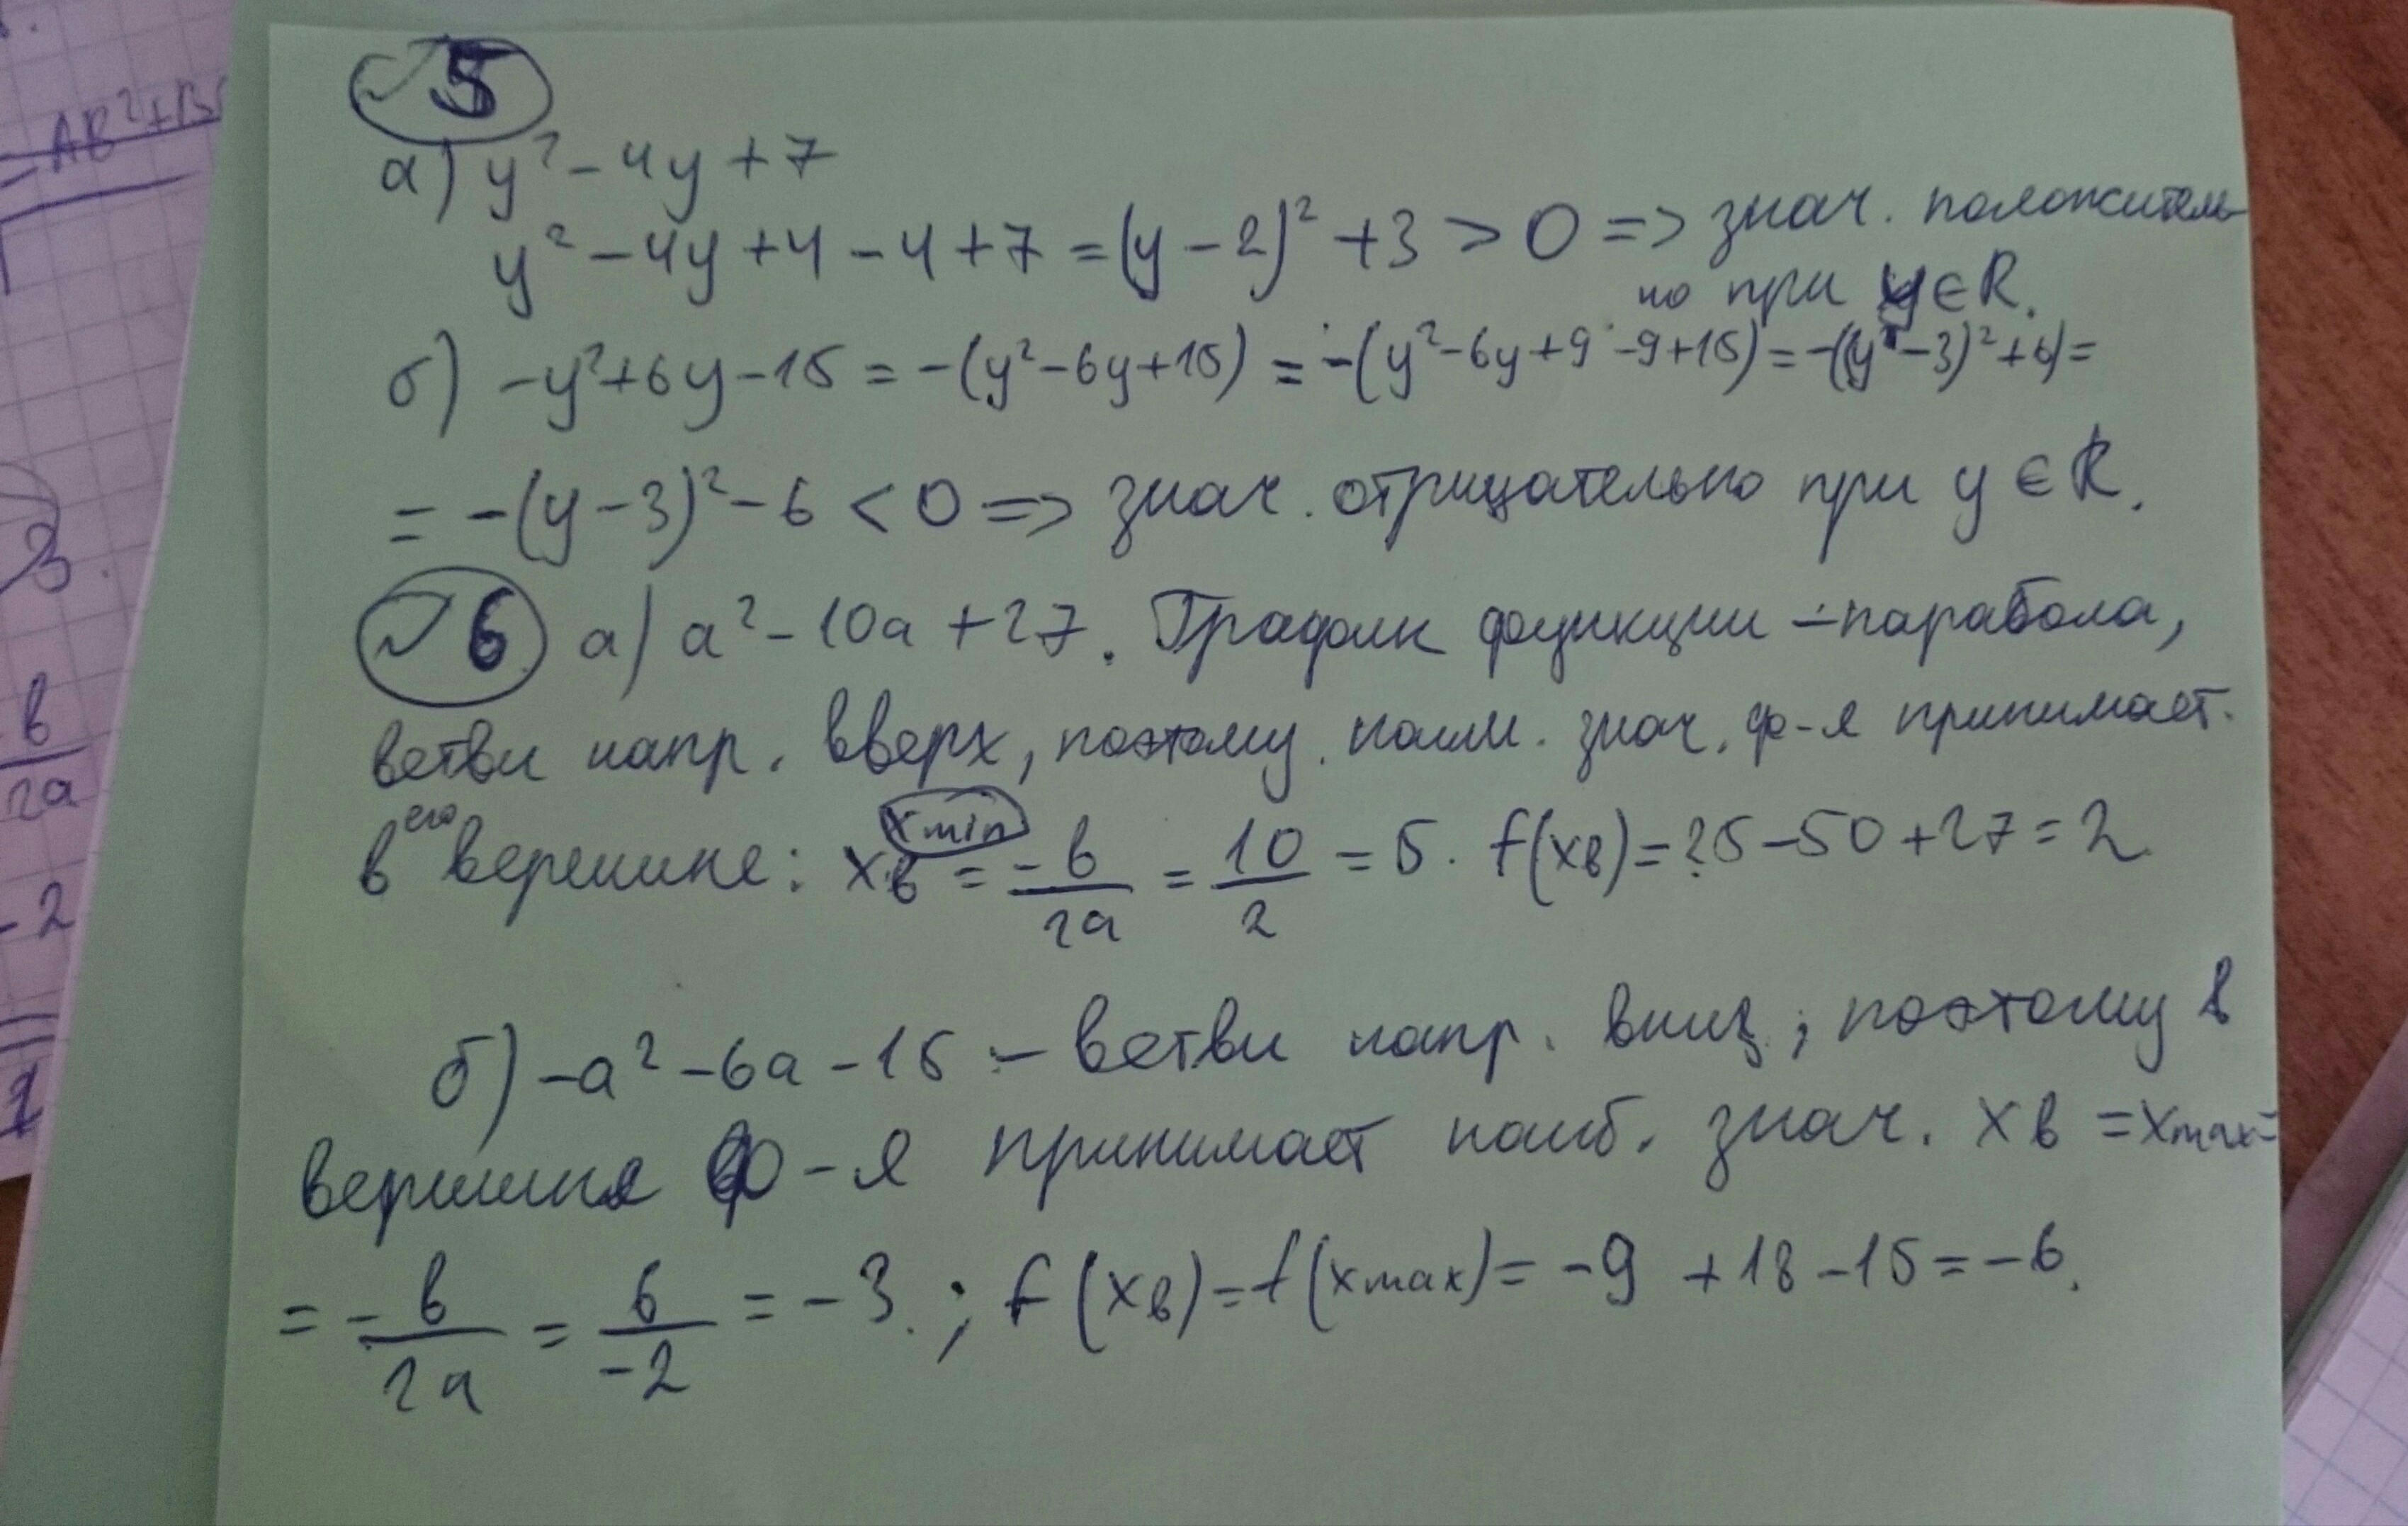 №5
а) y² - 4y + 7
y² - 4y + 4 - 4 + 7 = (y - 2)² + 3 > 0 => знач. положитель
но при y ∈ R.
б) -y² + 6y - 15 = -(y² - 6y + 15) = -(y² - 6y + 9 - 9 + 15) = -((y - 3)² + 6) =
= -(y - 3)² - 6 < 0 => знач. отрицательно при y ∈ R.
№6 а) a² - 10a + 27. График функции - парабола,
ветви напр. вверх, поэтому наим. знач. ф-я принимает
в его вершине: xв xmin = -b/2a = 10/2 = 5. f(xв) = 25 - 50 + 27 = 2
б) -a² - 6a - 15 - ветви напр. вниз, поэтому в
вершине ф-я принимает наиб. знач. xв = xmax =
= -b/2a = 6/-2 = -3.; f(xв) = f(xmax) = -9 + 18 - 15 = -6.
= AB² + B
3.
b
2a
- 2
1